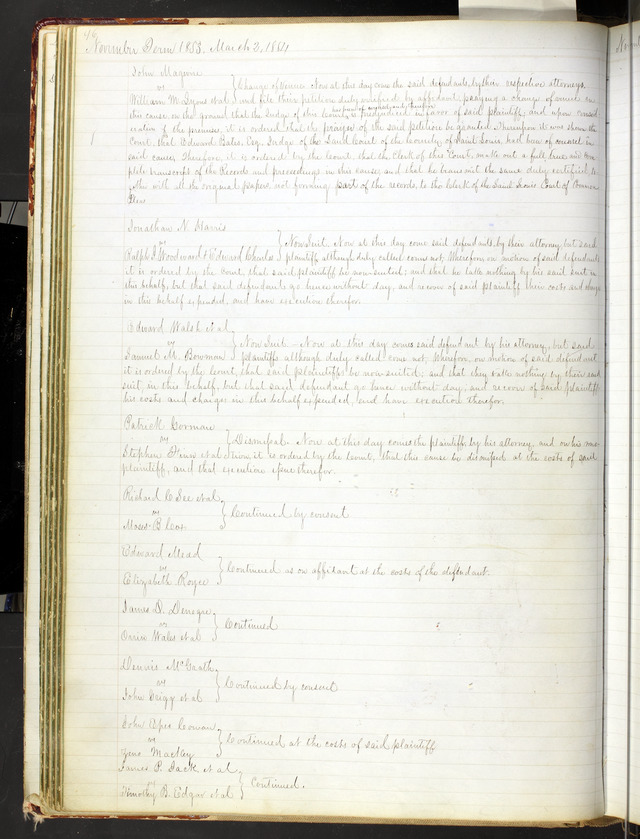 November Term 1853. March 3, 1854
John Maguire
vs
William M. Lyons et al } Change of venue. Now at this day come the said defendants, by their respective attorneys
and file their petition duly verified by affidavit praying a change of venue in
this cause, on the ground that the Judge of this Court is prejudiced in favor of said plaintiff, and upon consid
eration of the premises, it is ordered that the prayer of the said petition be granted. Thereupon it was shown the
Court, that Edward Bates, Esq. Judge of the Land Court of the County of Saint Louis, had been of counsel in
said cause, Therefore, it is ordered by the Court, that the Clerk of this Court, make out a full, true and com
plete transcript of the Records and proceedings in this cause, and that he transmit the same duly certified to
gether with all the original papers, not forming part of the records, to the Clerk of the Saint Louis Court of Common
Pleas
Jonathan N. Harris
vs
Ralph J Woodward & Edward Charles } Non Suit. Now at this day come said defendants by their attorney, but said
plaintiff although duly called comes not, Wherefore, on motion of said defendants
it is ordered by the Court, that said plaintiff be non-suited, and that he take nothing by his said suit in
this behalf, but that said defendants go hence without day, and recover of said plaintiff their costs and charges
in this behalf expended, and have execution therefor.
Edward Walsh et al
vs
Samuel M. Bowman } Non Suit. Now at this day comes said defendant by his attorney, but said
plaintiffs although duly called come not, Wherefore, on motion of said defendant
it is ordered by the Court, that said plaintiffs be non suited, and that they take nothing by their said
suit, in this behalf, but that said defendant go hence without day, and recover of said plaintiffs
his costs and charges in this behalf expended, and have execution therefor.
Patrick Gorman
vs
Stephen et al } Dismissal. Now at this day comes the plaintiff, by his attorney, and on his mo
tion, it is ordered by the Court, that this cause be dismissed at the costs of said
plaintiff, and that execution issue therefor.
Richard C See et al
vs
Moses B Cox } Continued by consent
Edward Mead
vs
Elizabeth Royce } Continued as on affidavit at the costs of the defendant.
James D. Denegre
vs
Orrin Wales et al } Continued
Dennis McGrath
vs
John et al } Continued by consent
John Cowan
vs
Mackey } Continued at the costs of said plaintiff
James P. Jack et al
vs
Timothy B. Edgar et al } Continued.